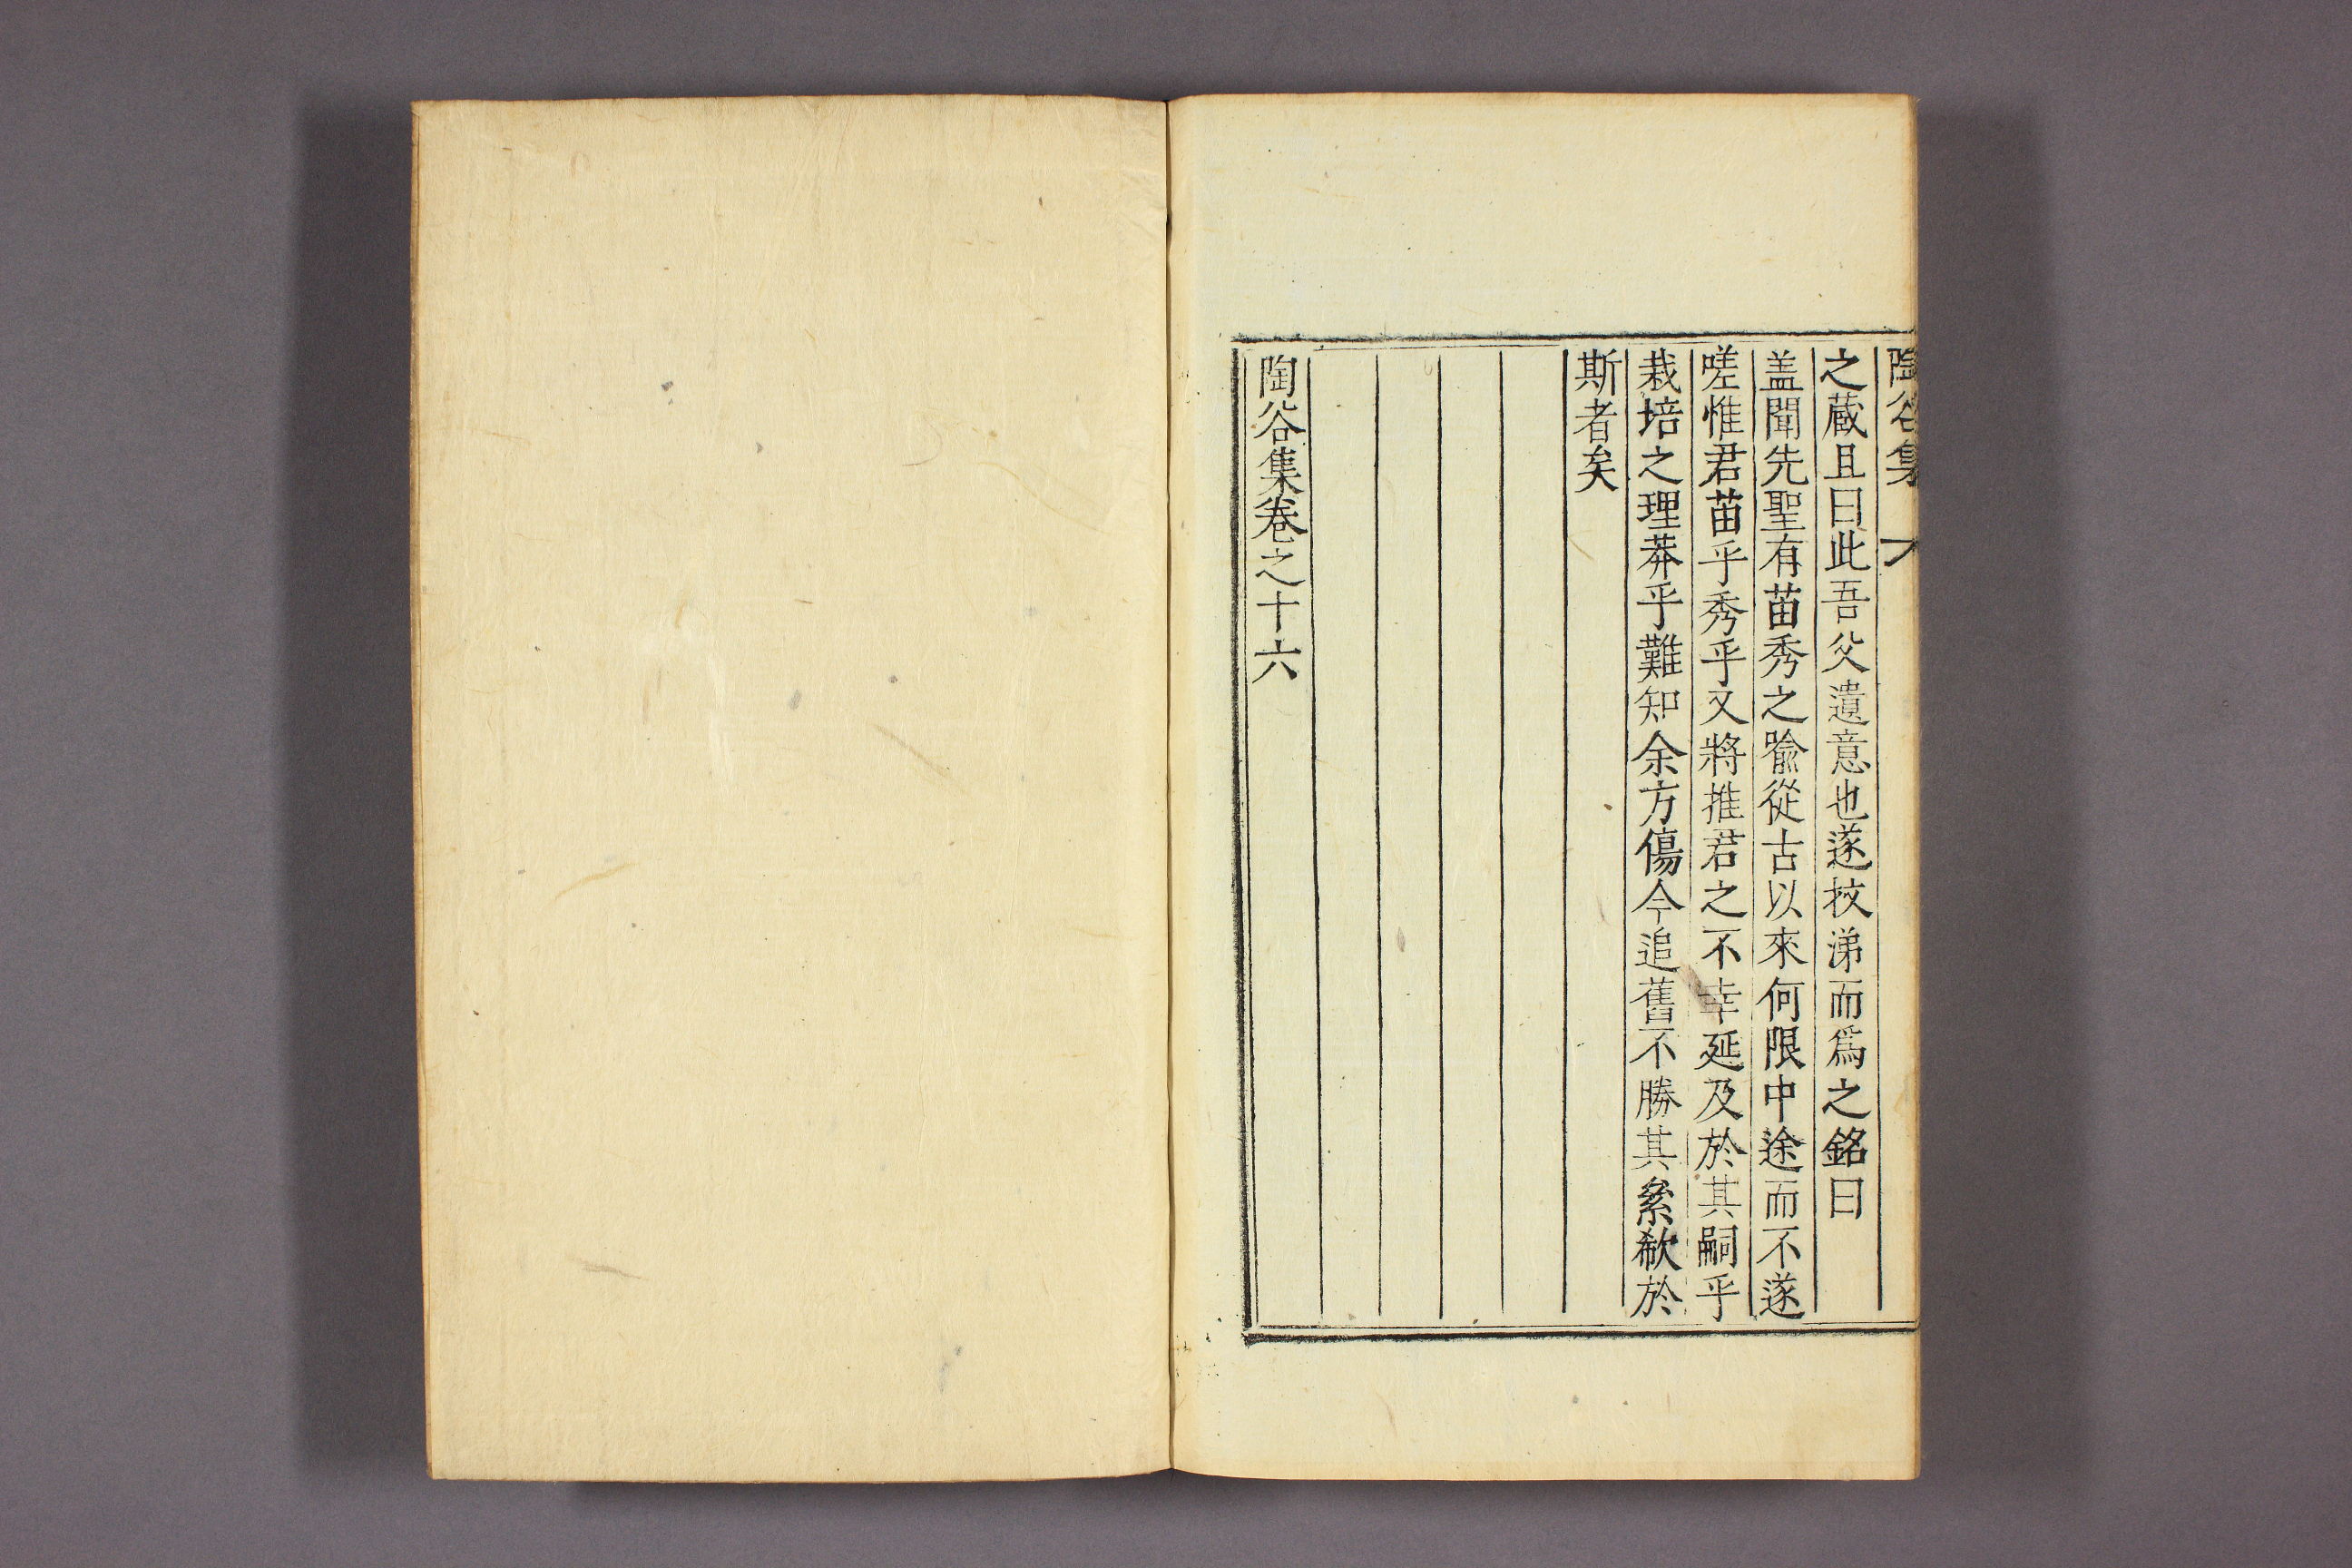 陶谷集
之蔵且曰此吾父遺意也遂抆涕而爲之銘曰
盖聞先聖有苗秀之喩從古以來何限中途而不遂
嗟惟君苗乎秀乎又將推君之不幸延及於其嗣乎
栽培之理莽乎難知余方傷今追舊不勝其絫欷於
斯者矣
陶谷集卷之十六